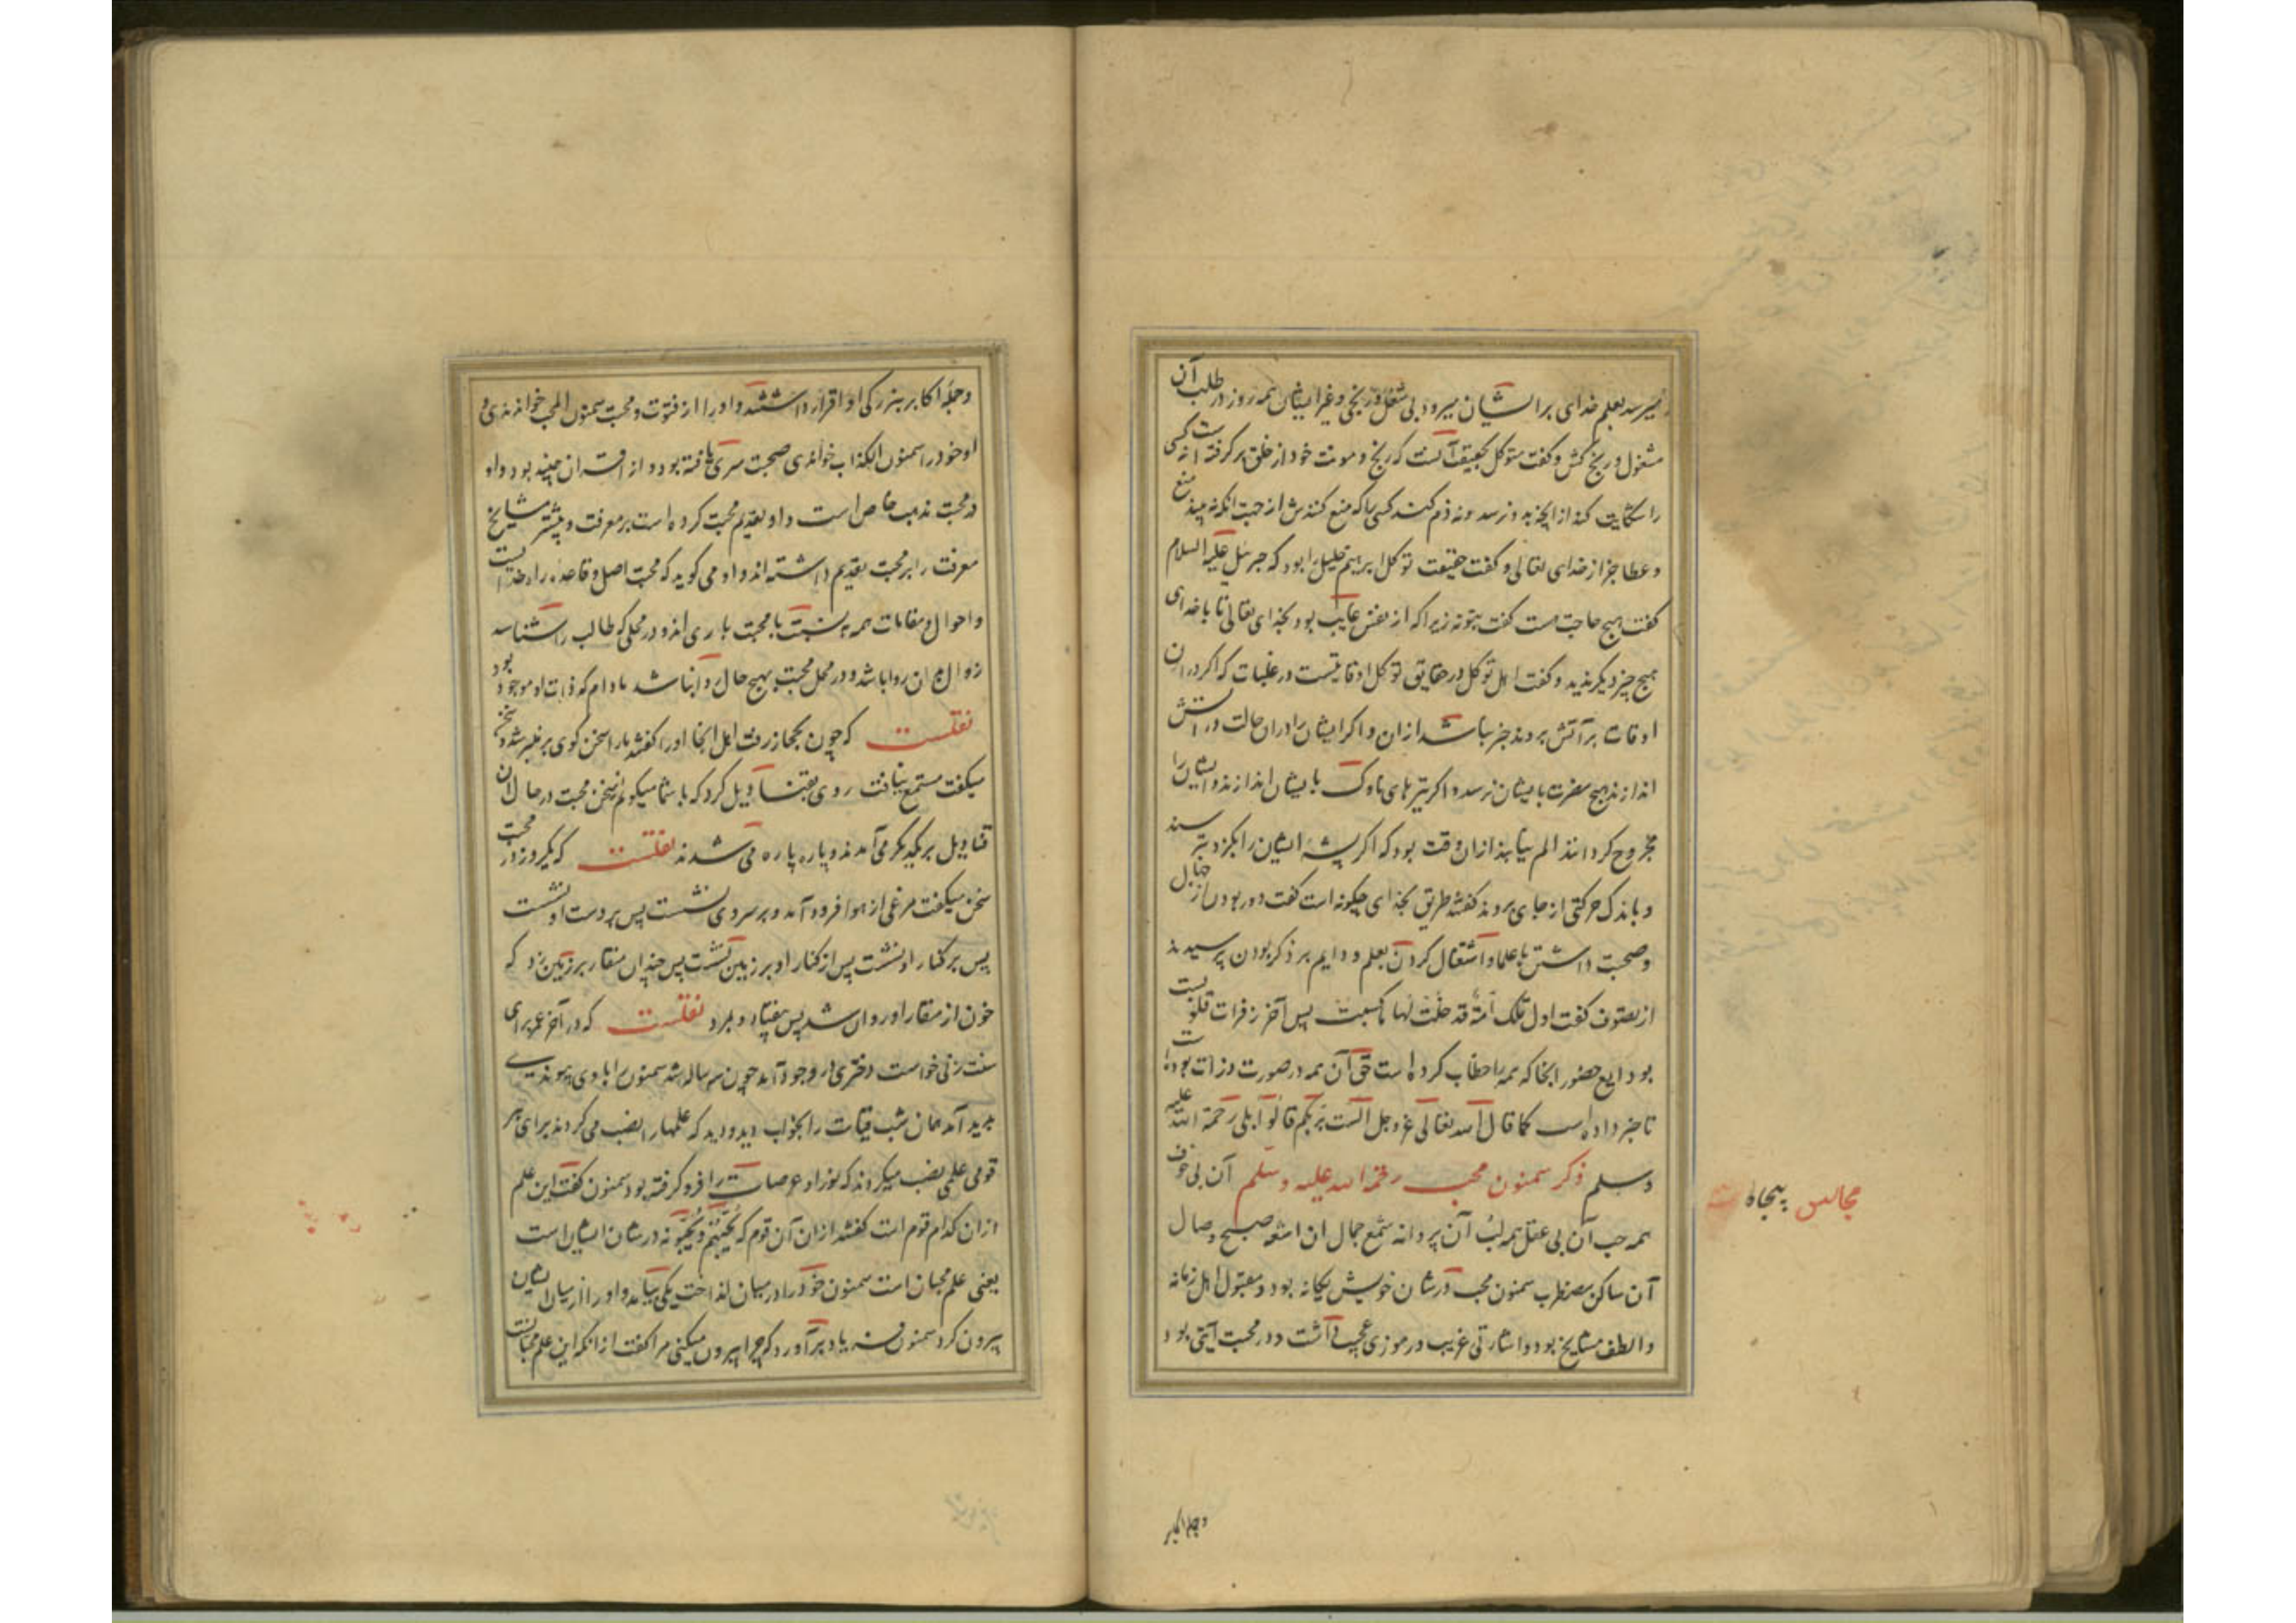 میرسد بعلم خدای برایشان میرود بی شغل و رنجی و غیر ایشان همه روز در طلب آن
مشغول و رنج کش و کفت متوکل بحقیقت آنست که رنج و مونت خود از خلق بر کرفته است نه کسی
را شکایت کند از انچه بدو رسد و نه ذم کند کسی را که منع کندش از جهت انکه نه بیند منع
و عطا جز از خدای تعالی و کفت حقیقت توکل ابرهیم خلیل را بود که جبرئیل علیه السلام
کفت هیچ حاجت هست کفت بتو نه زیرا که از نفس غایب بود بخدای تعالی تا با خدای
هیچ چیز دیکر ندید و کفت اهل توکل در حقایق توکل اوقاتیست در غلبات که اکر در ان
اوقات بر آتش بروند خبر نباشد از ان و اکر ایشان را در ان حالت در آتش
اندازند هیچ مضرت بایشان نرسد و اکر تیرهای ناوک بایشان اندازند و ایشان را
مجروح کردانند الم نیابند از ان و وقت بود که اکر پشه ایشان را بکزد بترسند
و باندک حرکتی از جای بروند کفتند طریق بخدای چکونه است کفت دور بودن از جهال
و صحبت داشتن با علما و اشتغال کردن بعلم و دایم بر ذکر بودن پرسیدند
از تصوف کفت اول تلک امة قد خلت لها ما کسبت پس آخر زفرات قلوبست
بودایع حضور انجا که همه را خطاب کرده است حق آن همه در صورت ذرات بوده‌اند
تا خبر داده است کما قال الله تعالی عز و جل الست بربکم قالوا بلی رحمة الله علیه
وسلم ذکر سمنون محب رحمة الله علیه وسلم آن بی خوف
همه حب آن بی عقل همه لب آن پروانه شمع جمال ان اشفته صبح وصال
آن ساکن مضطرب سمنون محب در شان خویش یکانه بود و مقبول اهل زمانه
و الطف مشایخ بود و اشارتی غریب و رموزی عجب داشت و در محبت آیتی بود
مجالس پنجاه
و جمله اکابر
و جمله اکابر ببزرکی او اقرار داشتند و او را از فتوت و محبت سمنون المحب خواندندی و
او خود را سمنون الکذاب خواندی صحبت سری یافته بود و از اقران جنید بود و او
در محبت مذهب خاص است و او تقدیم محبت کرده است بر معرفت و بیشتر مشایخ
معرفت را بر محبت تقدیم داشته اند و او می کوید که محبت اصل و قاعده راه خدا است
و احوال و مقامات همه نسبت با محبت بازی اند و در محلی که طالب را شناسد
زوال بران روا باشد و در محل محبت بهیچ حال روا نباشد مادام که ذات او موجود بود
نقلست که چون بحجاز رفت اهل انجا او را کفتند ما را سخن کوی بر منبر شد و سخن
میکفت مستمع نیافت روی بقنادیل کرد که با شما میکویم سخن محبت در حال ان
قنادیل بر یکدیکر می آمدند و پاره پاره می شدند نقلست که یکروز در محبت
سخن میکفت مرغی از هوا فرود آمد و بر سر وی نشست پس بر دست او نشست
پس بر کنار او نشست پس از کنار او بر زمین نشست پس چندان منقار بر زمین زد که
خون از منقار او روان شد پس بیفتاد و بمرد نقلست که در آخر عمر برای
سنت زنی خواست دختری در وجود آمد چون سه ساله شد سمنون را با وی پیوندی
پدید آمد همان شب قیامت را بخواب دید و دید که علمها را نصب می کردند برای هر
قومی علمی نصب میکردند که نور او عرصات را فرو کرفته بود سمنون کفت این علم
از ان کدام قوم است کفتند از ان آن قوم که یحبهم و یحبونه در شان ایشان است
یعنی علم محبان است سمنون خود را در میان انداخت یکی بیامد و او را از میان ایشان
بیرون کرد سمنون فریاد برآورد که چرا بیرون میکنی مرا کفت از انکه این علم محبانست